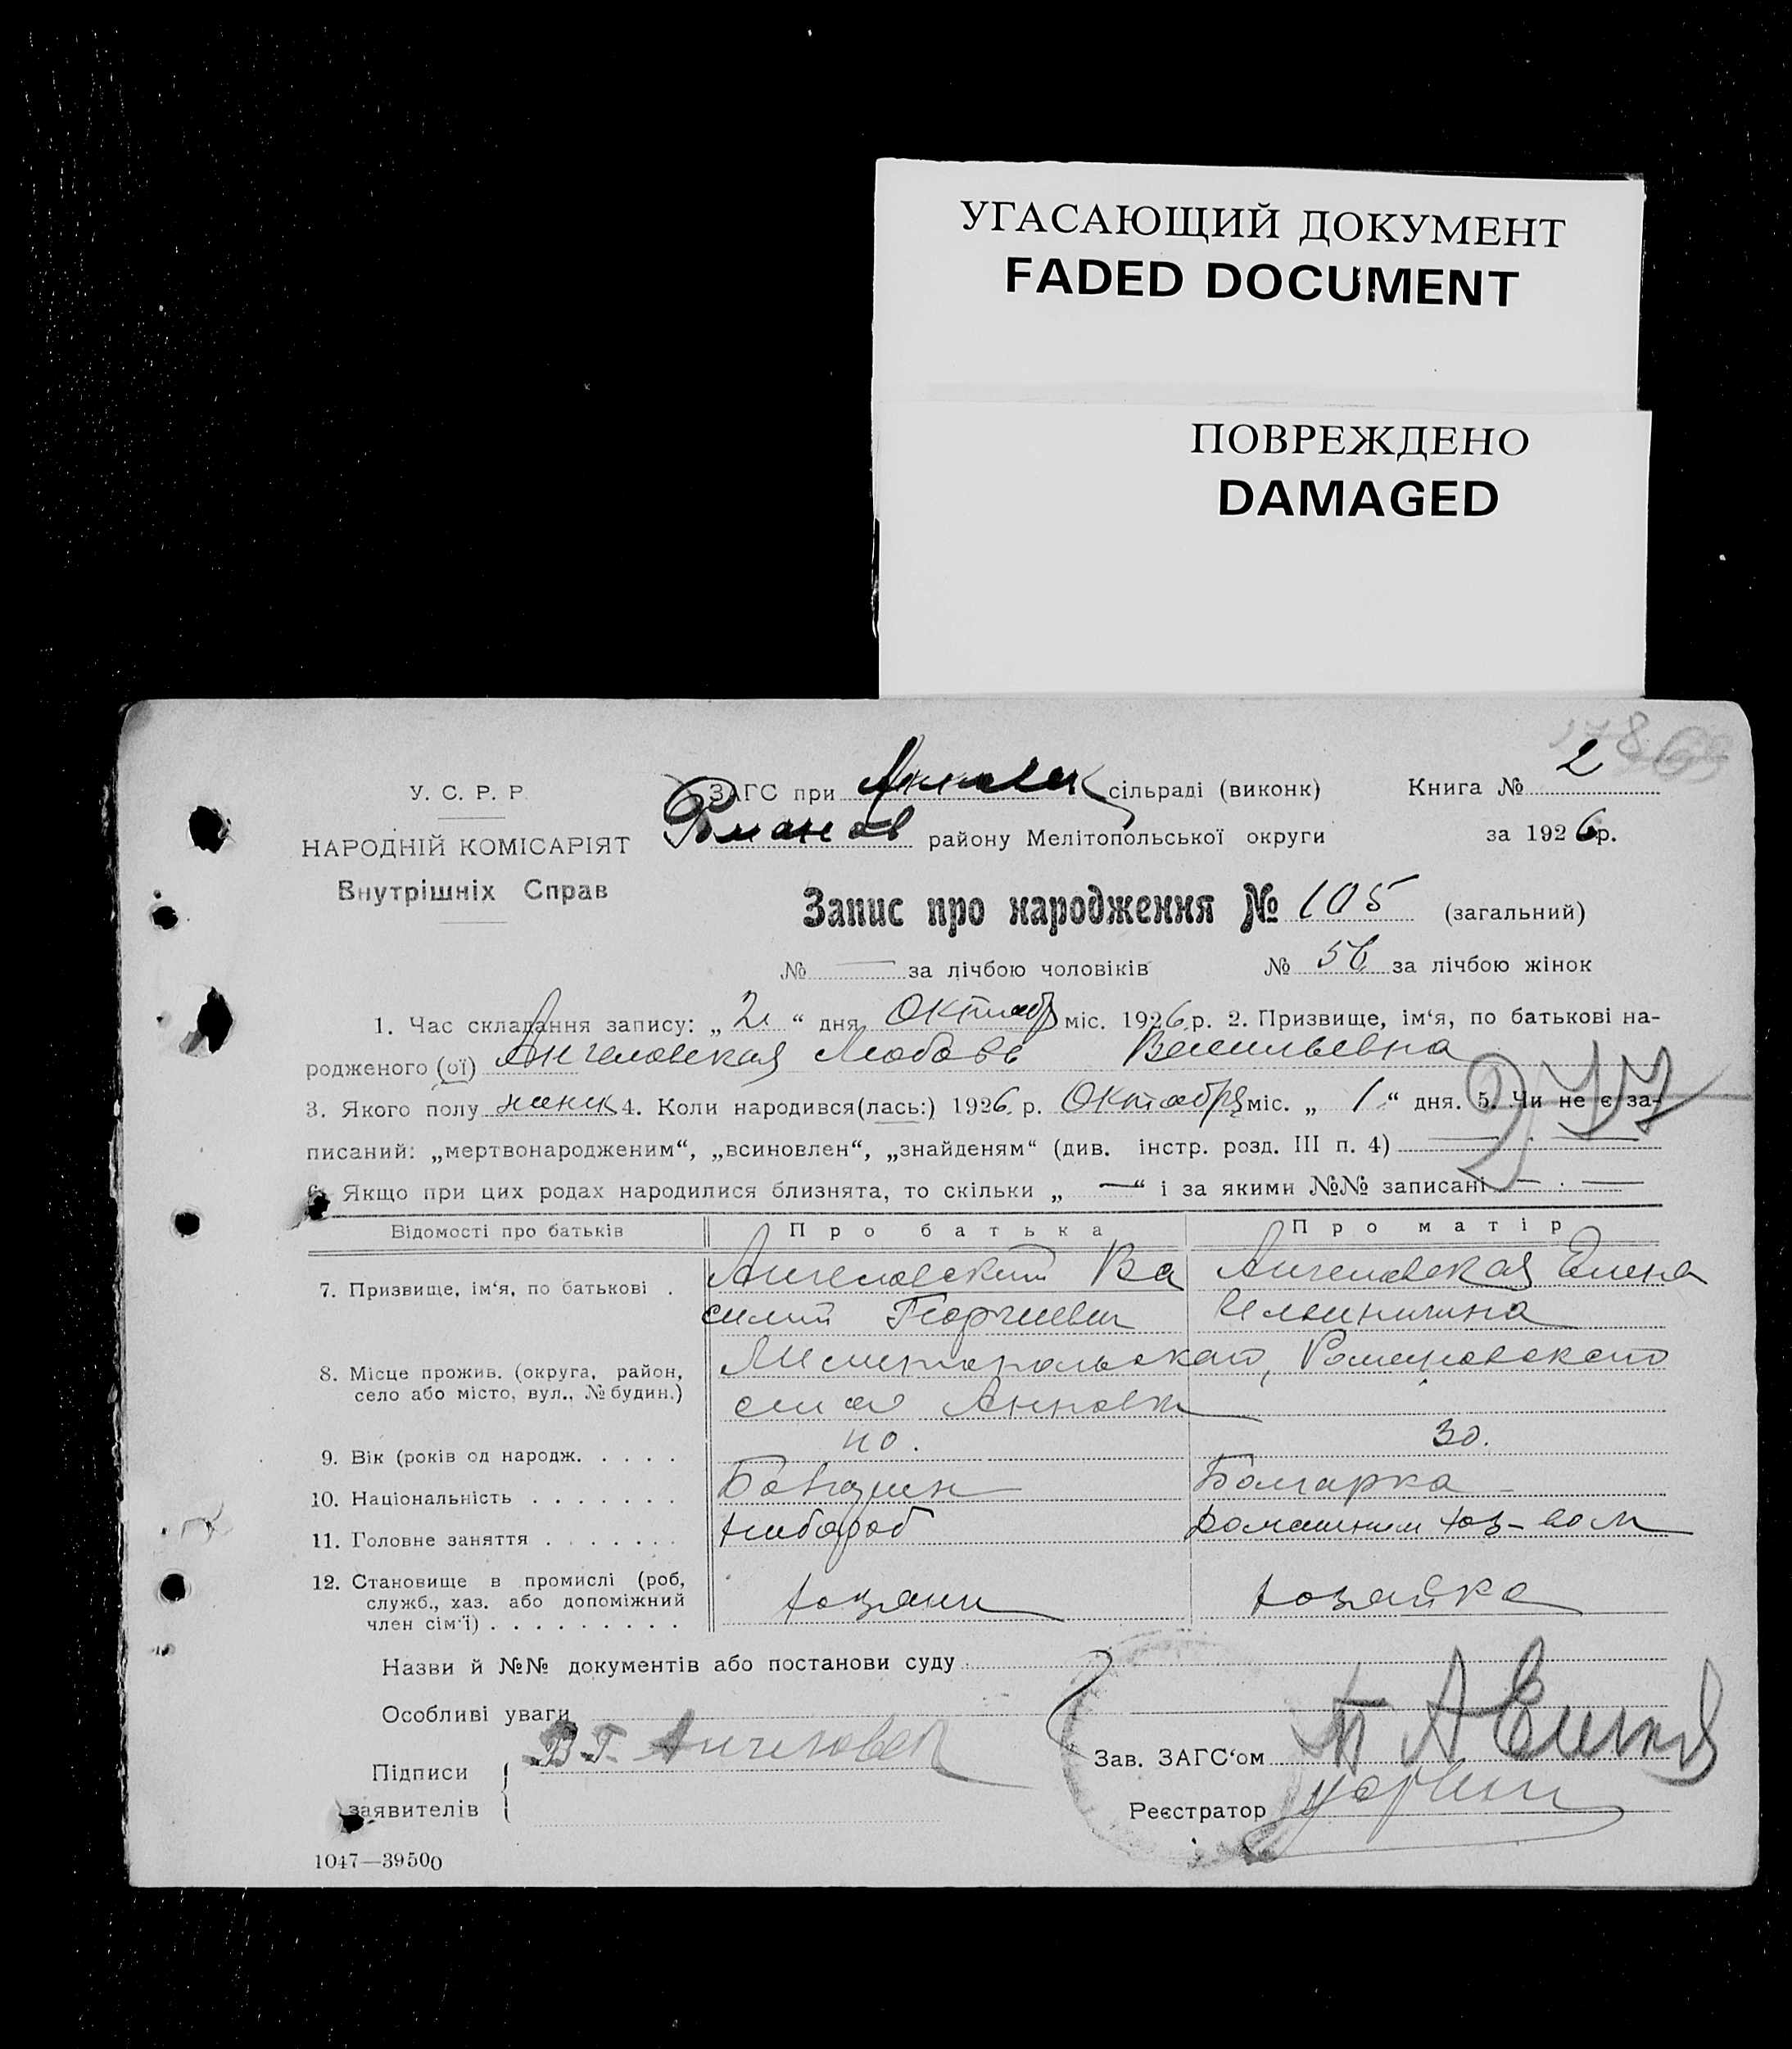 УГАСАЮЩИЙ ДОКУМЕНТ
FADED DOCUMENT
ПОВРЕЖДЕНО
DAMAGED
У. С. Р. Р.
НАРОДНІЙ КОМІСАРІЯТ
Внутрішніх Справ
ЗАГС при сільраді (виконк)
Книга № 2
Роман ов району Мелітопольської округи
за 1926 р.
Запис про народження № 105 (загальний)
№ — за лічбою чоловіків № 56 за лічбою жінок
1. Час складання запису: „ “ дня Октяабр міс. 1926 р. 2. Призвище, ім‘я, по батькові на-
родженого (ої) Ангеловская Любовь Васильевна
3. Якого полу женск 4. Коли народився(лась:) 1926 р. Октября міс. „ 1 “ дня. 5. Чи не є за-
977
писаний: „мертвонародженим“, „всиновлен“, „знайденям“ (див. інстр. розд. III п. 4) — —
6. Якщо при цих родах народилися близнята, то скільки „ — “ і за якими №№ записані — —
Відомості про батьків Про батька Про матір
7. Призвище, ім‘я, по батькові .
Ангеловский Ва
силий Георгиевич
Ангеловская Елена
8. Місце прожив. (округа, район,
село або місто, вул., № будин.)
Мелитопольского, Романовского
село Анновка
9. Вік (років од народж. . . . . 40. 30.
10. Національність . . . . . . . Болгарка
11. Головне заняття . . . . . . . хлебороб домашним хоз-вом
12. Становище в промислі (роб,
служб., хаз. або допоміжний
член сім‘ї) . . . . . . . . .
хозяин хозяйка
Назви й №№ документів або постанови суду
Особливі уваги
Підписи
заявителів
В Г. Ангеловск
Зав. ЗАГС‘ом
Реєстратор
1047—39500